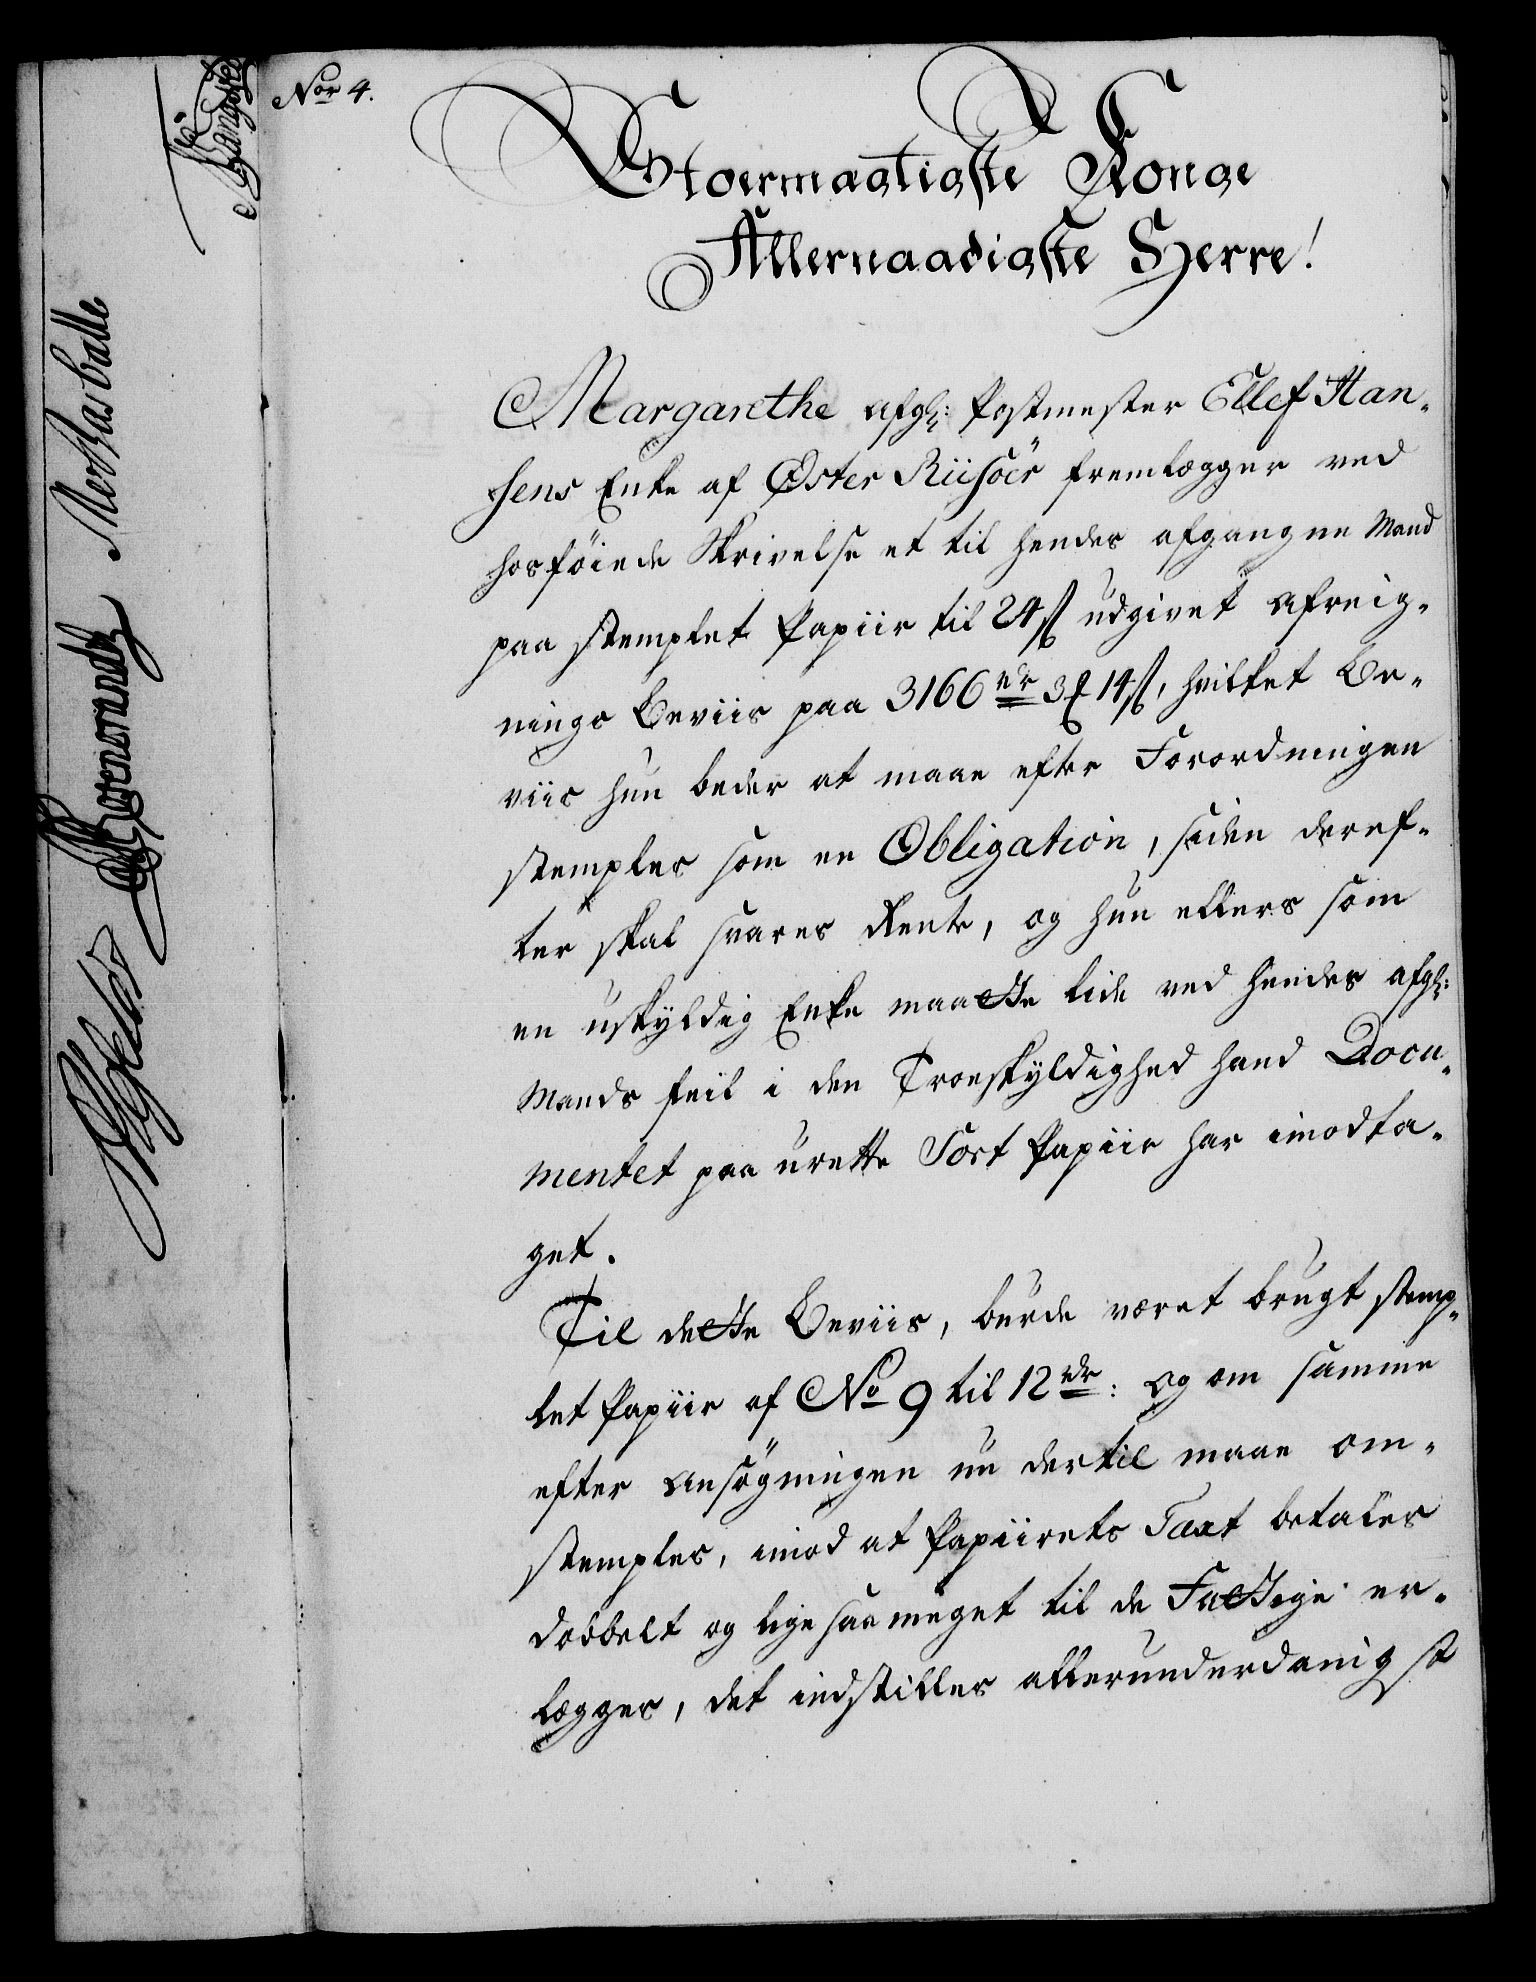 Nor 4.
Stoermægtigste Konge
Allernaadigste Herre!
Margarethe afgl: Postmester Ellef Han-
sens Enke af Øster Riisöer fremlægger ved
hosföiede Skrivelse et til hendes afgangne Mand
paa stemplet Papiir til 24 ß udgivet Afreig-
nings Beviis paa 3166 rdr 3 ℳ 14 ß, hvilket Be-
viis hun beder at maae efter Forordningen
stemples som en Obligation, siden deref-
ter skal svares Rente, og hun ellers som
en uskyldig Enke maatte lide ved hendes afgl:
Mands feil i den Troeskyldighed hand Docu-
mentet paa urette Sort Papiir har imodta-
get.
Til dette Beviis, burde været brugt stemp-
let Papiir af No 9 til 12 rdr: og om samme
efter Ansögningen nu dertil maae om-
stemples, imod at Papiirets Taxt betales
dobbelt og lige saa meget til de Fattige er-
lægges, det indstilles allerunderdanigst